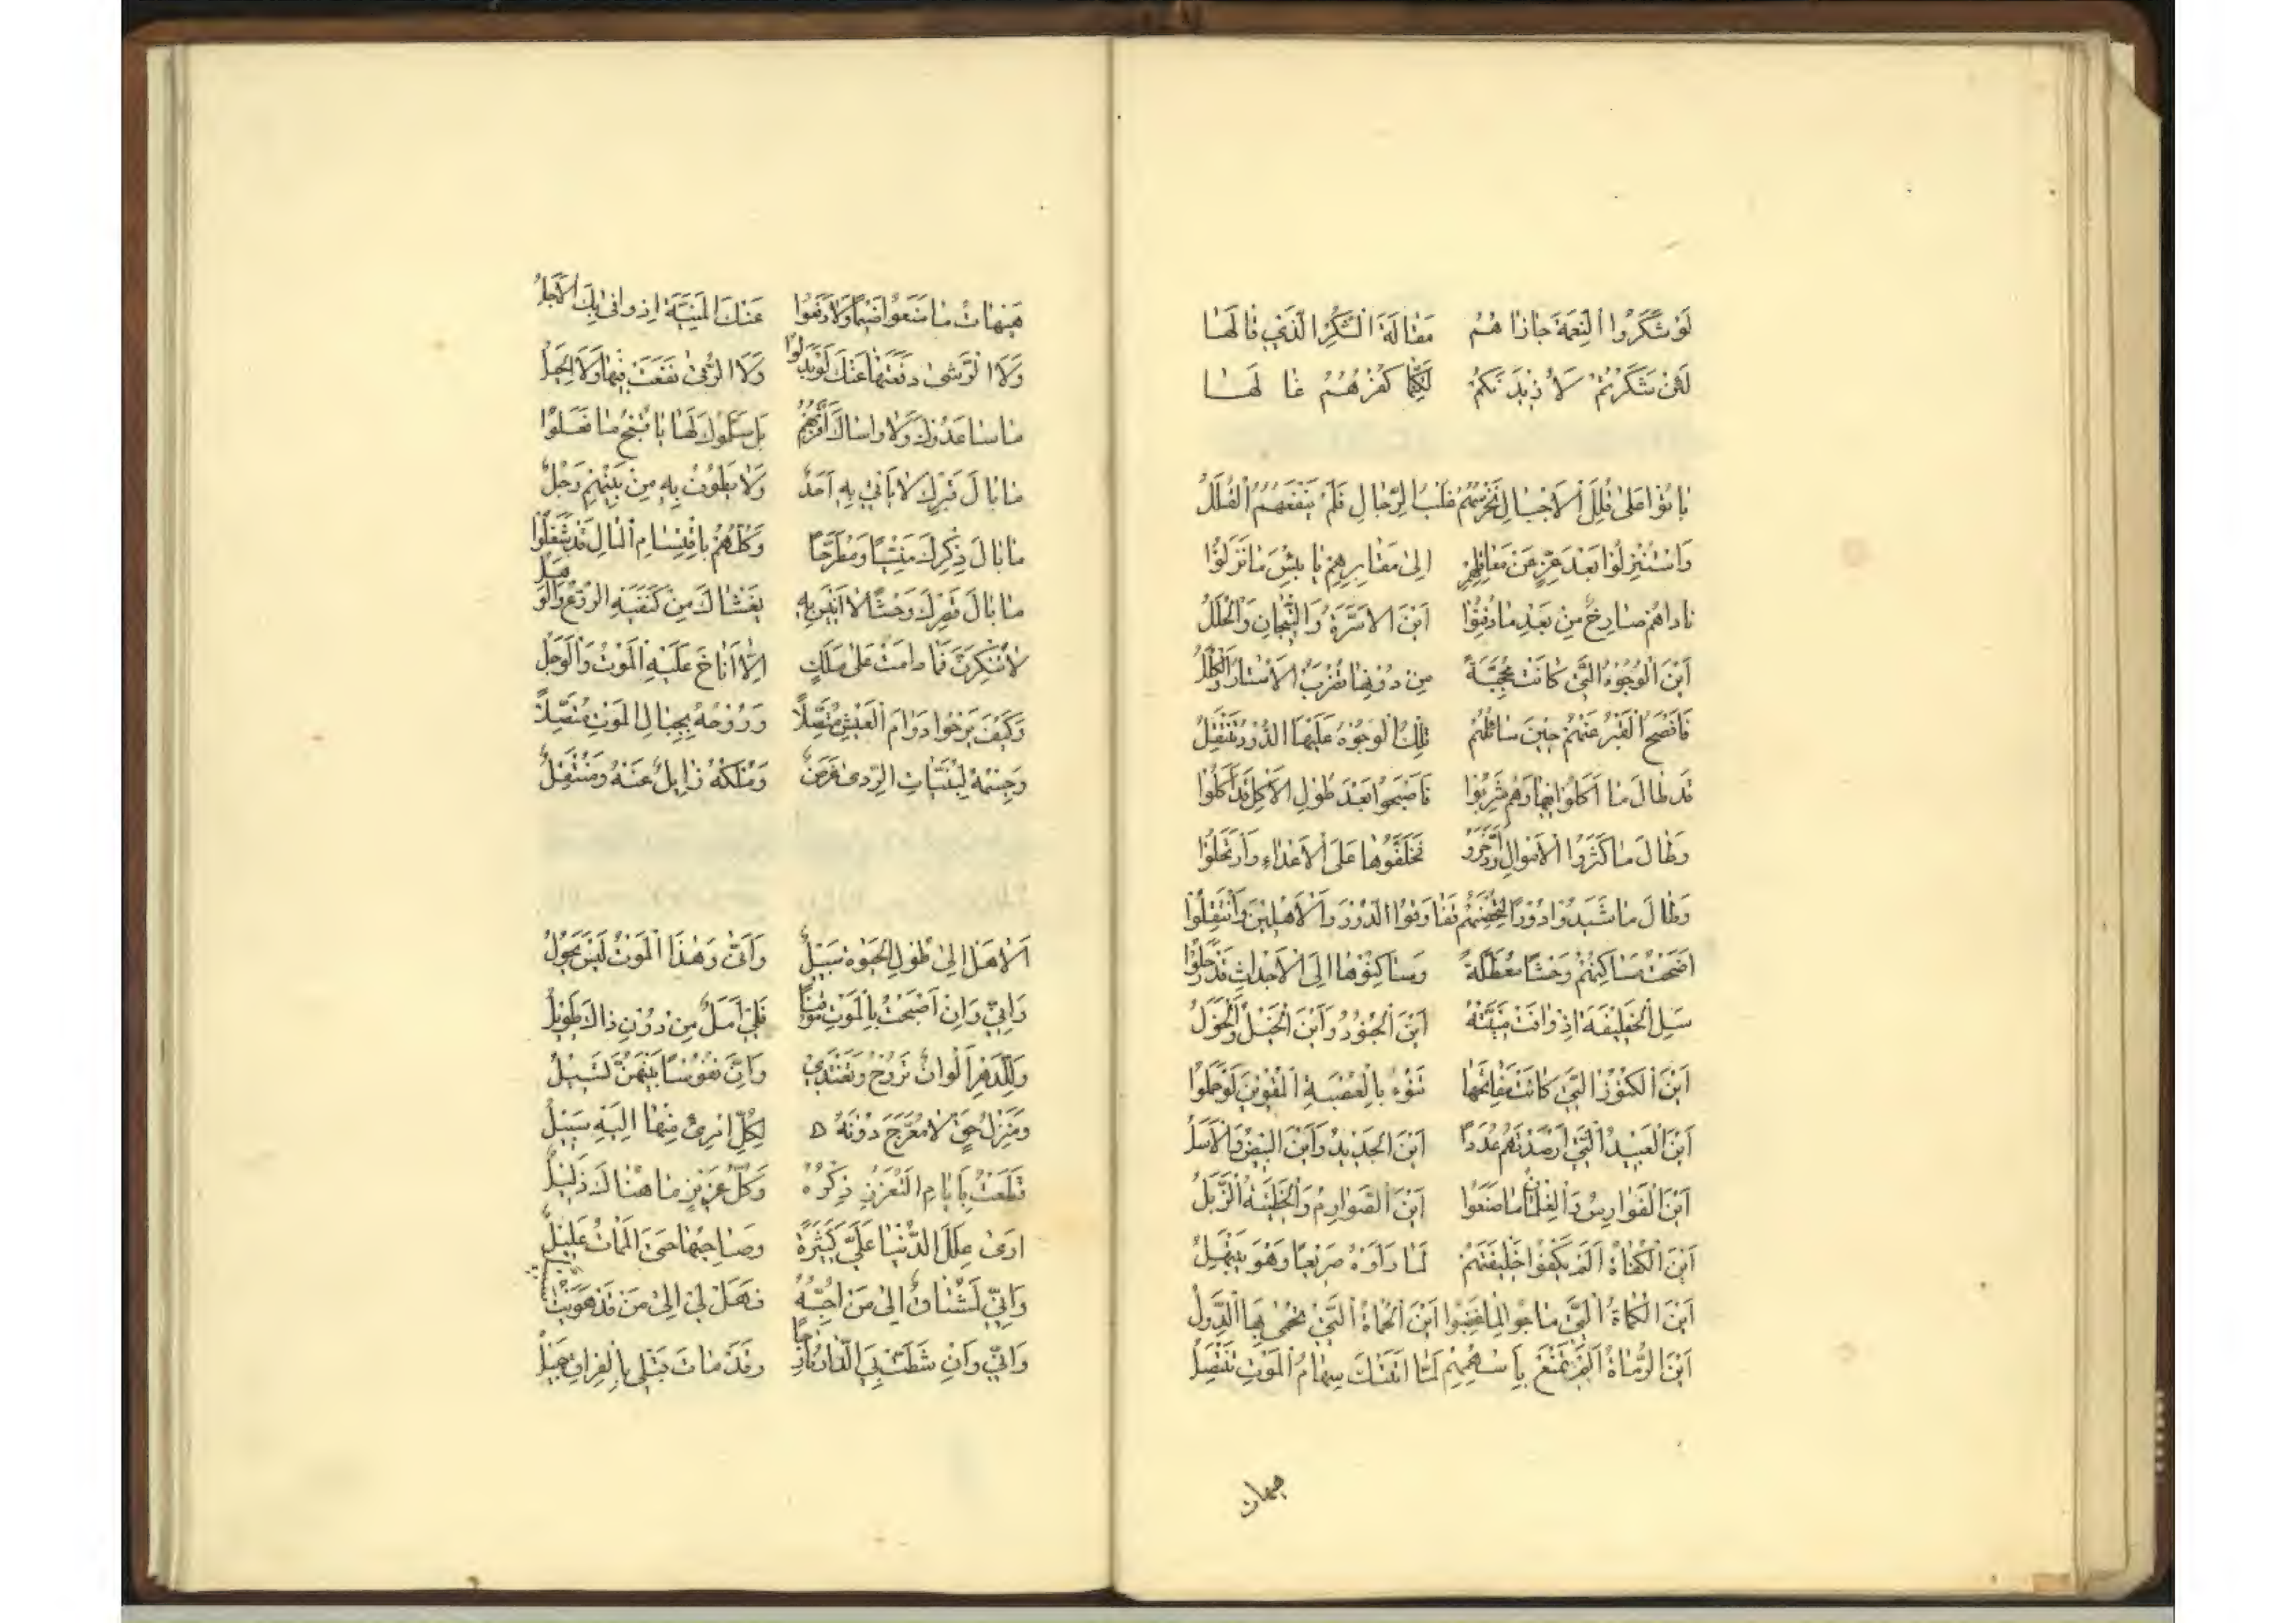 لَوْ شَكَرُوا النِّعْمَةَ جَازَاهُمْ مَقَالَةَ الشُّكْرِ الَّذِي قَالَهَا
لَئِنْ شَكَرْتُمْ لَأَزِيدَنَّكُمْ لَكِنَّمَا كُفْرُهُمْ غَالَهَا
بَاتُوا عَلَى قُلَلِ الْأَجْبَالِ تَحْرُسُهُمْ غُلْبُ الرِّجَالِ فَلَمْ يَنْفَعْهُمُ الْقُلَلُ
وَاسْتُنْزِلُوا بَعْدَ عِزٍّ عَنْ مَعَاقِلِهِمْ إِلَى مَقَابِرِهِمْ يَا بِئْسَ مَا نَزَلُوا
نَادَاهُمْ صَارِخٌ مِنْ بَعْدِ مَا دُفِنُوا أَيْنَ الْأَسِرَّةُ وَالتِّيجَانُ وَالْحُلَلُ
أَيْنَ الْوُجُوهُ الَّتِي كَانَتْ مُحَجَّبَةً مِنْ دُونِهَا تُضْرَبُ الْأَسْتَارُ وَالْكِلَلُ
فَأَفْصَحَ الْقَبْرُ عَنْهُمْ حِينَ سَائَلَهُمْ تِلْكَ الْوُجُوهُ عَلَيْهَا الدُّودُ تَنْتَقِلُ
قَدْ طَالَ مَا أَكَلُوا فِيهَا وَهُمْ شَرِبُوا فَأَصْبَحُوا بَعْدَ طُولِ الْأَكْلِ قَدْ أُكِلُوا
وَطَالَ مَا كَثَّرُوا الْأَمْوَالَ وَادَّخَرُوا فَخَلَّفُوهَا عَلَى الْأَعْدَاءِ وَارْتَحَلُوا
وَطَالَ مَا شَيَّدُوا دُورًا لِتُحْصِنَهُمْ فَفَارَقُوا الدُّورَ وَالْأَهْلِينَ وَانْتَقَلُوا
أَضْحَتْ مَسَاكِنُهُمْ وَحْشًا مُعَطَّلَةً وَسَاكِنُوهَا إِلَى الْأَجْدَاثِ قَدْ رَحَلُوا
سَلِ الْخَلِيفَةَ إِذْ وَافَتْ مَنِيَّتُهُ أَيْنَ الْجُنُودُ وَأَيْنَ الْخَيْلُ وَالْخَوَلُ
أَيْنَ الْكُنُوزُ الَّتِي كَانَتْ مَفَاتِحُهَا تَنُوءُ بِالْعُصْبَةِ الْمُقْوِينَ لَوْ حَمَلُوا
أَيْنَ الْعَبِيدُ الَّتِي أَرْصَدْتَهُمْ عُدَدًا أَيْنَ الْحَدِيدُ وَأَيْنَ الْبِيضُ وَالْأَسَلُ
أَيْنَ الْفَوَارِسُ وَالْغِلْمَانُ مَا صَنَعُوا أَيْنَ الصَّوَارِمُ وَالْخَطِّيَّةُ الذُّبُلُ
أَيْنَ الْكُفَاةُ أَلَمْ يَكْفُوا خَلِيفَتَهُمْ لَمَّا رَأَوْهُ صَرِيعًا وَهْوَ يَبْتَهِلُ
أَيْنَ الْكُمَاةُ الَّتِي مَاجُوا لِمَا غَضِبُوا أَيْنَ الْحُمَاةُ الَّتِي تُحْمَى بِهَا الدُّوَلُ
أَيْنَ الرُّمَاةُ أَلَمْ تَمْنَعْ بِأَسْهُمِهِمْ لَمَّا أَتَتْكَ سِهَامُ الْمَوْتِ تَنْتَضِلُ
هيهات
هَيْهَاتَ مَا مَنَعُوا ضَيْمًا وَلَا دَفَعُوا عَنْكَ الْمَنِيَّةَ إِذْ وَافَى بِكَ الْأَجَلُ
وَلَا الرُّشَى دَفَعَتْهَا عَنْكَ لَوْ بَذَلُوا وَلَا الرُّقَى نَفَعَتْ فِيهَا وَلَا الْحِيَلُ
مَا سَاعَدُوكَ وَلَا وَاسَاكَ أَقْرَبُهُمْ بَلْ سَلَّمُوكَ لَهَا يَا قُبْحَ مَا فَعَلُوا
مَا بَالُ قَبْرِكَ لَا يَأْتِي بِهِ أَحَدٌ وَلَا يَطُوفُ بِهِ مِنْ بَيْنِهِمْ رَجُلٌ
مَا بَالُ ذِكْرِكَ مَنْسِيًّا وَمُطَّرَحًا وَكُلُّهُمْ بِاقْتِسَامِ الْمَالِ قَدْ شُغِلُوا
مَا بَالُ قَصْرِكَ وَحْشًا لَا أَنِيسَ بِهِ يَغْشَاكَ مِنْ كَنَفَيْهِ الرَّوْعُ وَالْوَهَلُ
لَا تُنْكِرَنَّ فَمَا دَامَتْ عَلَى مَلِكٍ إِلَّا أَنَاخَ عَلَيْهِ الْمَوْتُ وَالْوَجَلُ
وَكَيْفَ يَرْجُوا دَوَامَ الْعَيْشِ مُتَّصِلًا وَرُوحُهُ بِحِبَالِ الْمَوْتِ مُتَّصِلًا
وَجِسْمُهُ لِبُنَيَّاتِ الرَّدَى غَرَضٌ وَمُلْكُهُ زَايِلٌ عَنْهُ وَمُنْتَقِلٌ
أَلَا هَلْ إِلَى طُولِ الْحَيَوةِ سَبِيلٌ وَأَنَّى وَهَذَا الْمَوْتُ لَيْسَ يَحُولُ
وَإِنِّي وَإِنْ أَصْبَحْتُ بِالْمَوْتِ مُوقِنًا فَلِي أَمَلٌ مِنْ دُونِ ذَاكَ طَوِيلٌ
وَلِلدَّهْرِ أَلْوَانٌ تَرُوحُ وَتَغْتَدِي وَإِنَّ نُفُوسًا بَيْنَهُنَّ تَسِيلُ
وَمَنْزِلُ حَقٍّ لَا مُعَرَّجَ دُونَهُ لِكُلِّ امْرِئٍ مِنْهَا إِلَيْهِ سَبِيلٌ
قَطَعْتُ بِأَيَّامِ التَّعَزُّزِ ذِكْرَهُ وَكُلُّ عَزِيزٍ مَا هُنَاكَ ذَلِيلٌ
أَرَى عِلَلَ الدُّنْيَا عَلَيَّ كَثِيرَةً وَصَاحِبُهَا حَتَّى الْمَمَاتِ عَلِيلٌ
وَإِنِّي لَمُشْتَاقٌ إِلَى مَنْ أُحِبُّهُ فَهَلْ لِي إِلَى مَنْ قَدْ هَوِيتُ سَبِيلٌ
وَإِنِّي وَإِنْ شَطَّتْ بِيَ الدَّارُ نَازِحًا وَقَدْ مَاتَ قَبْلِي بِالْفِرَاقِ جَمِيلٌ